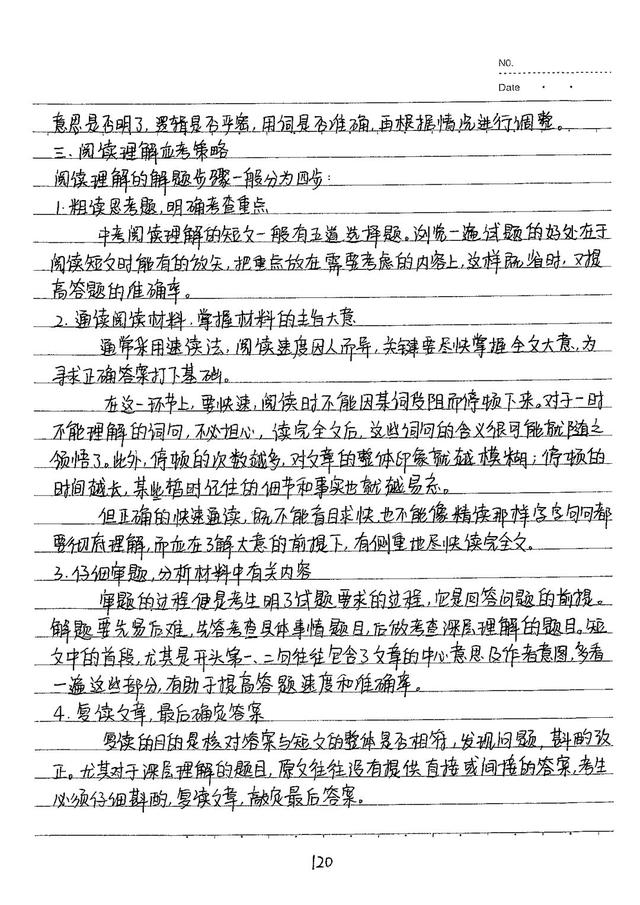 NO.
Date · ·
意思是否明了,逻辑是否严密,用词是否准确,再根据情况进行调整。
三、阅读理解应考策略
阅读理解的解题步骤一般分为四步:
1.粗读思考题,明确考查重点
中考阅读理解的短文一般有五道选择题。浏览一遍试题的好处在于
阅读短文时能有的放矢,把重点放在需要考虑的内容上,这样既省时,又提
高答题的准确率。
2.通读阅读材料,掌握材料的主旨大意
通常采用速读法,阅读速度因人而异,关键要尽快掌握全文大意,为
寻求正确答案打下基础。
在这一环节上,要快速,阅读时不能因某词受阻而停顿下来。对于一时
不能理解的词句,不必担心,读完全文后,这些词句的含义很可能就随之
领悟了。此外,停顿的次数越多,对文章的整体印象就越模糊;停顿的
时间越长,某些暂时记住的细节和事实也就越易忘。
但正确的快速通读,既不能盲目求快,也不能像精读那样字字句句都
要彻底理解,而应在了解大意的前提下,有侧重地尽快读完全文。
3.仔细审题,分析材料中有关内容
审题的过程便是考生明了试题要求的过程,它是回答问题的前提。
解题要先易后难,先答考查具体事情题目,后做考查深层理解的题目。短
文中的首段,尤其是开头第一、二句往往包含了文章的中心意思及作者意图,多看
一遍这些部分,有助于提高答题速度和准确率。
4.复读文章,最后确定答案
复读的目的是核对答案与短文的整体是否相符,发现问题,斟酌改
正。尤其对于深层理解的题目,原文往往没有提供直接或间接的答案,考生
必须仔细斟酌,复读文章,敲定最后答案。
120